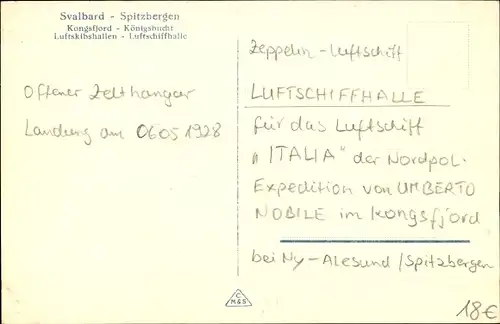 Svalbard - Spitzbergen
Kongsfjord - Königsbucht
Luftskibshallen - Luftschiffhalle
Offener Zelthangar
Landung am 06051928
Zeppelin-Luftschiff
LUFTSCHIFFHALLE
für das Luftschiff
„ITALIA" der Nordpol-
Expedition von UMBERTO
NOBILE im Kongsfjord
bei Ny-Alesund/Spitzbergen
C
M&S
18€